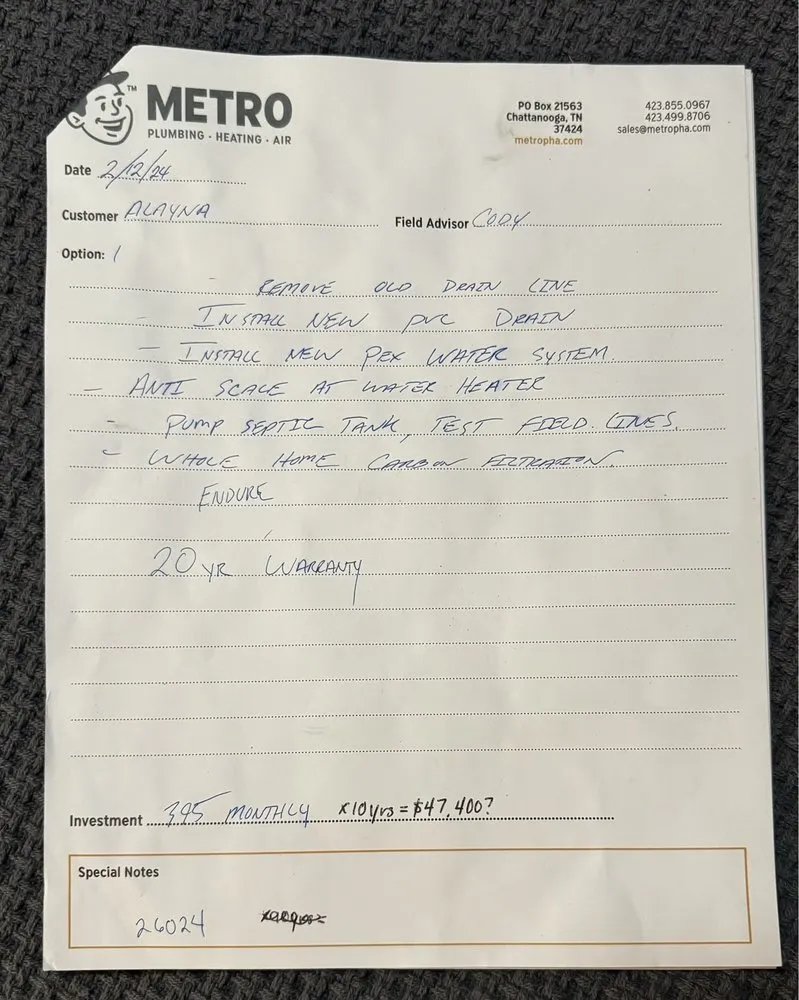 METRO™
PLUMBING · HEATING · AIR
PO Box 21563
Chattanooga, TN
37424
metropha.com
423.855.0967
423.499.8706
sales@metropha.com
Date 2/12/24
Customer ALAYNA
Field Advisor CODY
Option: 1
- REMOVE OLD DRAIN LINE
- INSTALL NEW PVC DRAIN
- INSTALL NEW PEX WATER SYSTEM
- ANTI SCALE AT WATER HEATER
- PUMP SEPTIC TANK, TEST FIELD LINES.
- WHOLE HOME CARBON FILTRATION.
ENDURE
20 YR WARRANTY
Investment 395 MONTHLY x10yrs = $47,400?
Special Notes
26024